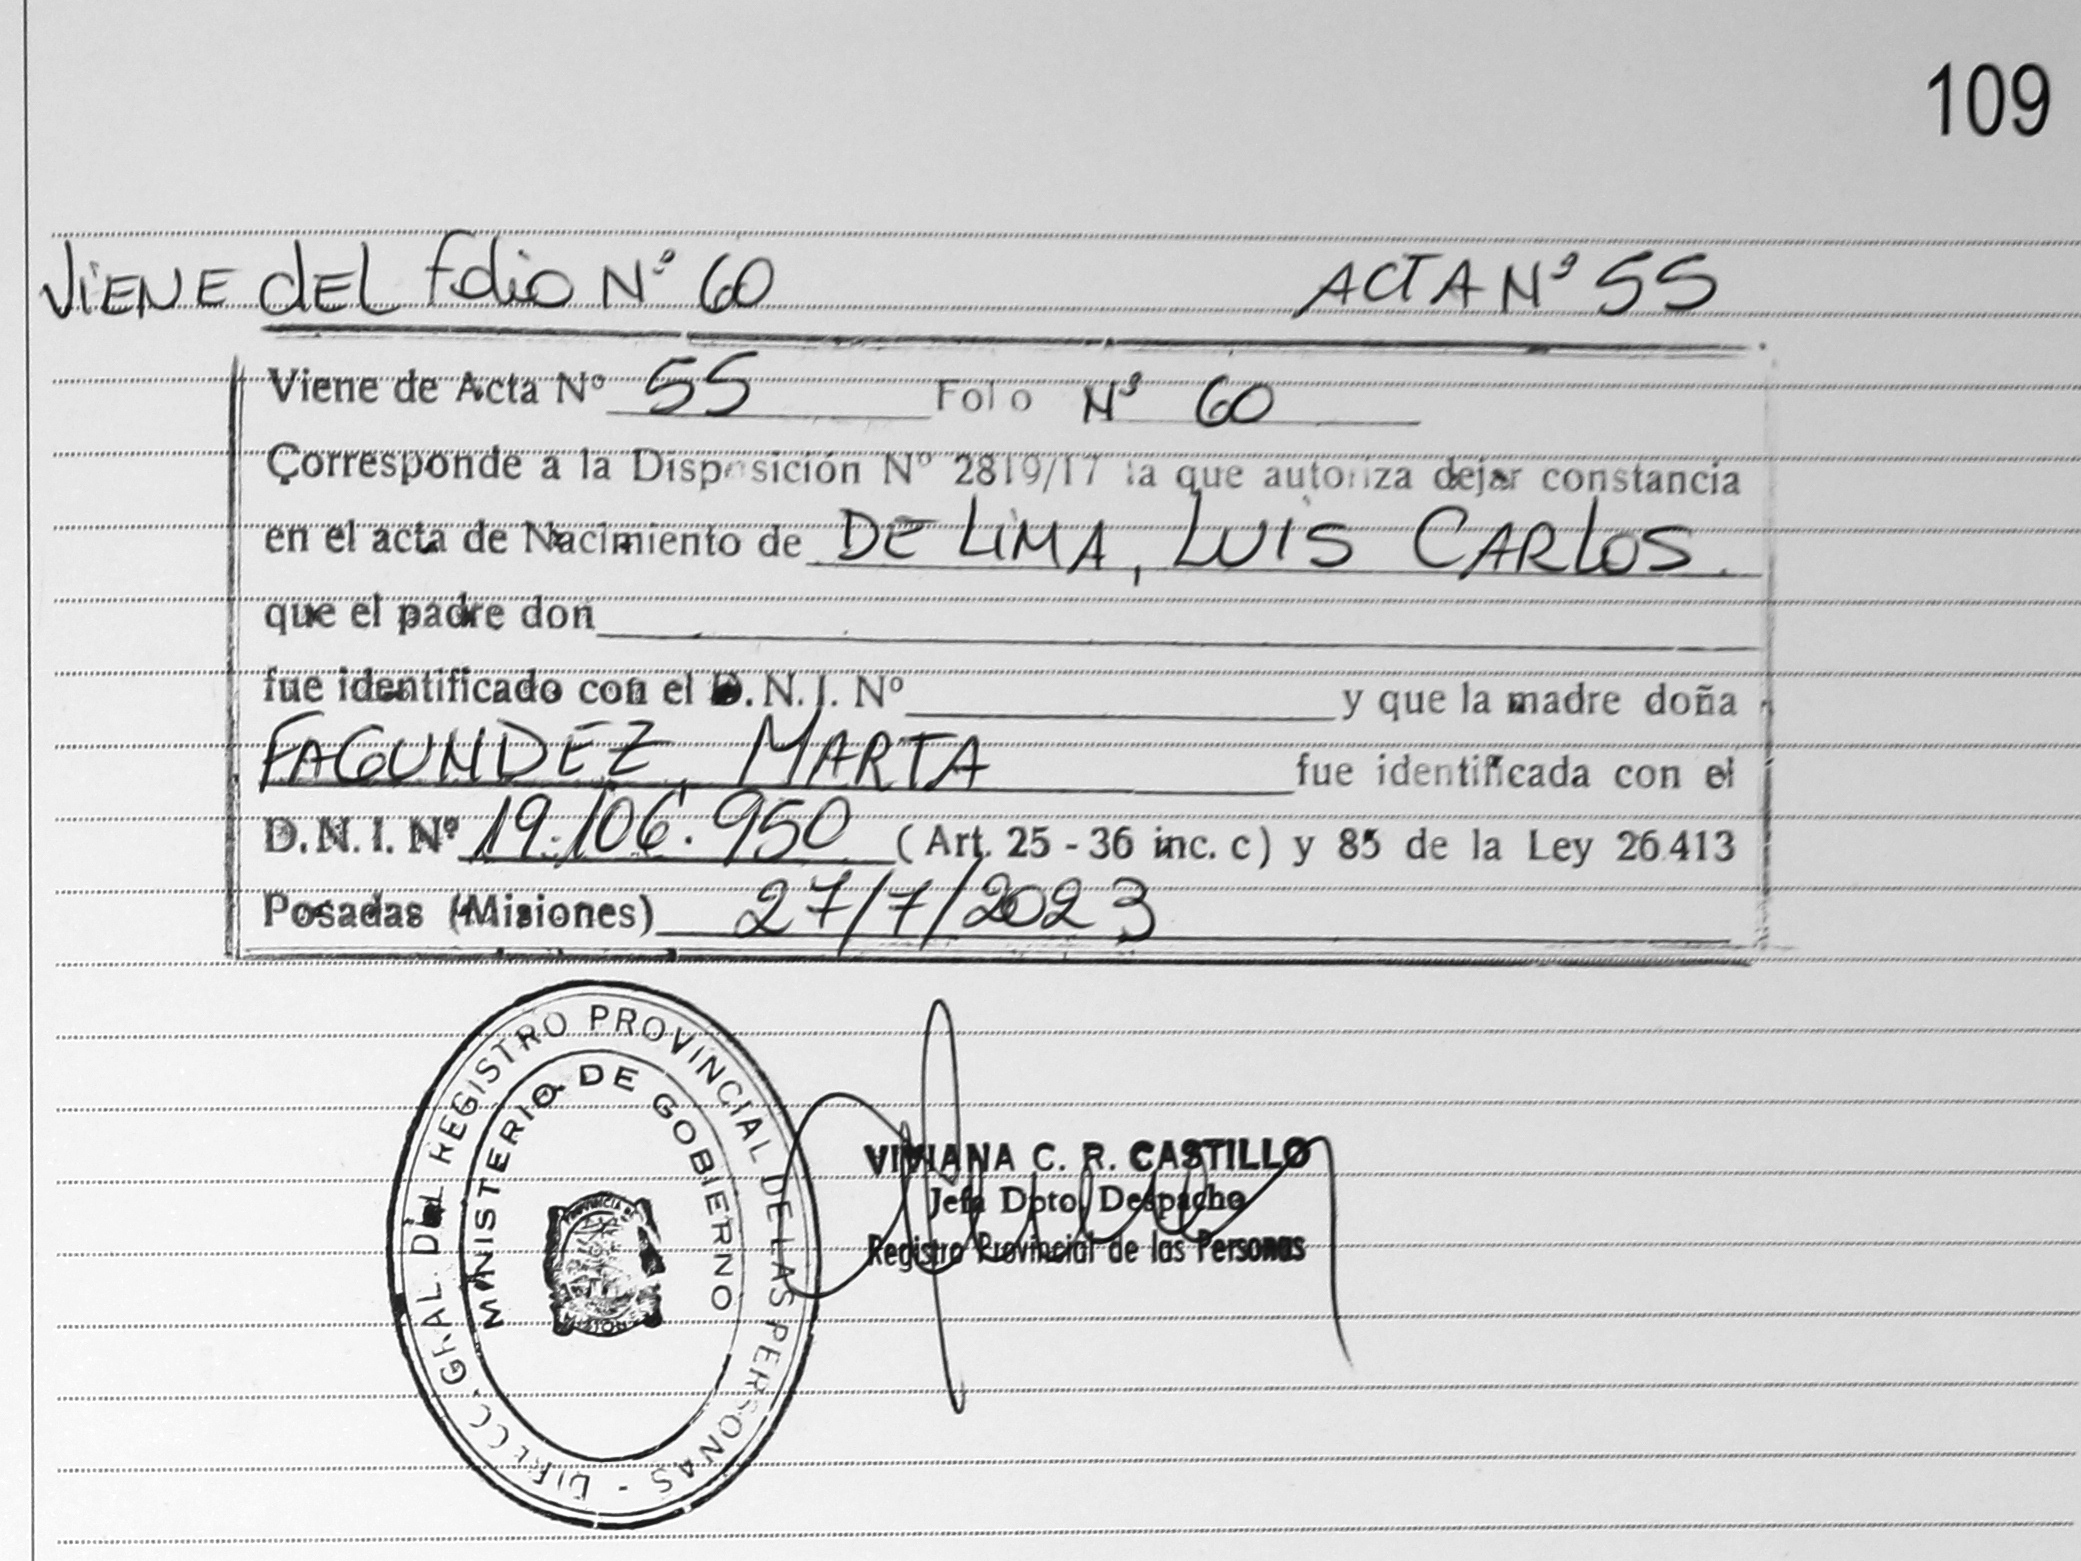 109
VIENE DEL Folio N° 60 ACTA N° 55
Viene de Acta Nº 55 Folio N° 60
Corresponde a la Disposición Nº 2819/17 la que autoriza dejar constancia
en el acta de Nacimiento de DE LIMA, LUIS CARLOS.
que el padre don
fue identificado con el D.N.I. Nº y que la madre doña
FAGUNDEZ, MARTA fue identificada con el
D.N.I. Nº 19.106.950 (Art. 25 - 36 inc. c) y 85 de la Ley 26.413
Posadas (Misiones) 27/7/2023
DIRECC. GRAL. DEL REGISTRO PROVINCIAL DE LAS PERSONAS -
MINISTERIO DE GOBIERNO
VIVIANA C. R. CASTILLO
Jefa Dpto. Despacho
Registro Provincial de las Personas